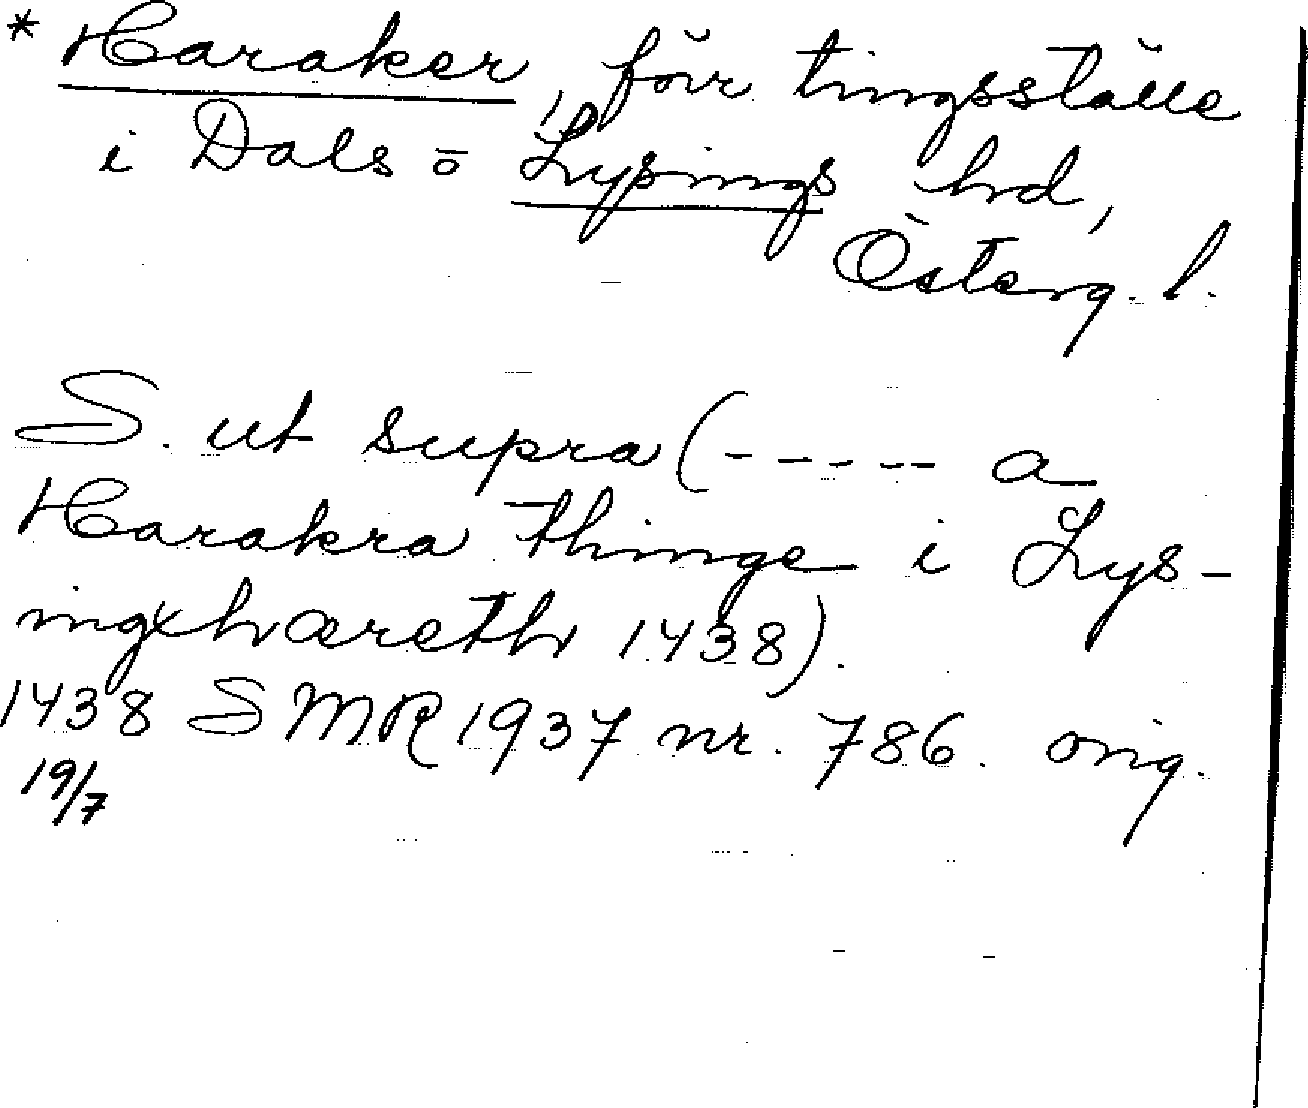 * Haraker, förr tingsställe
i Dals o Lysings hrd,
Österg. l.
S. ut supra (----- a
Harakra thinge i Lys-
ingxhæreth 1438).
1438 SMR 1937 nr. 786. orig.
19/7